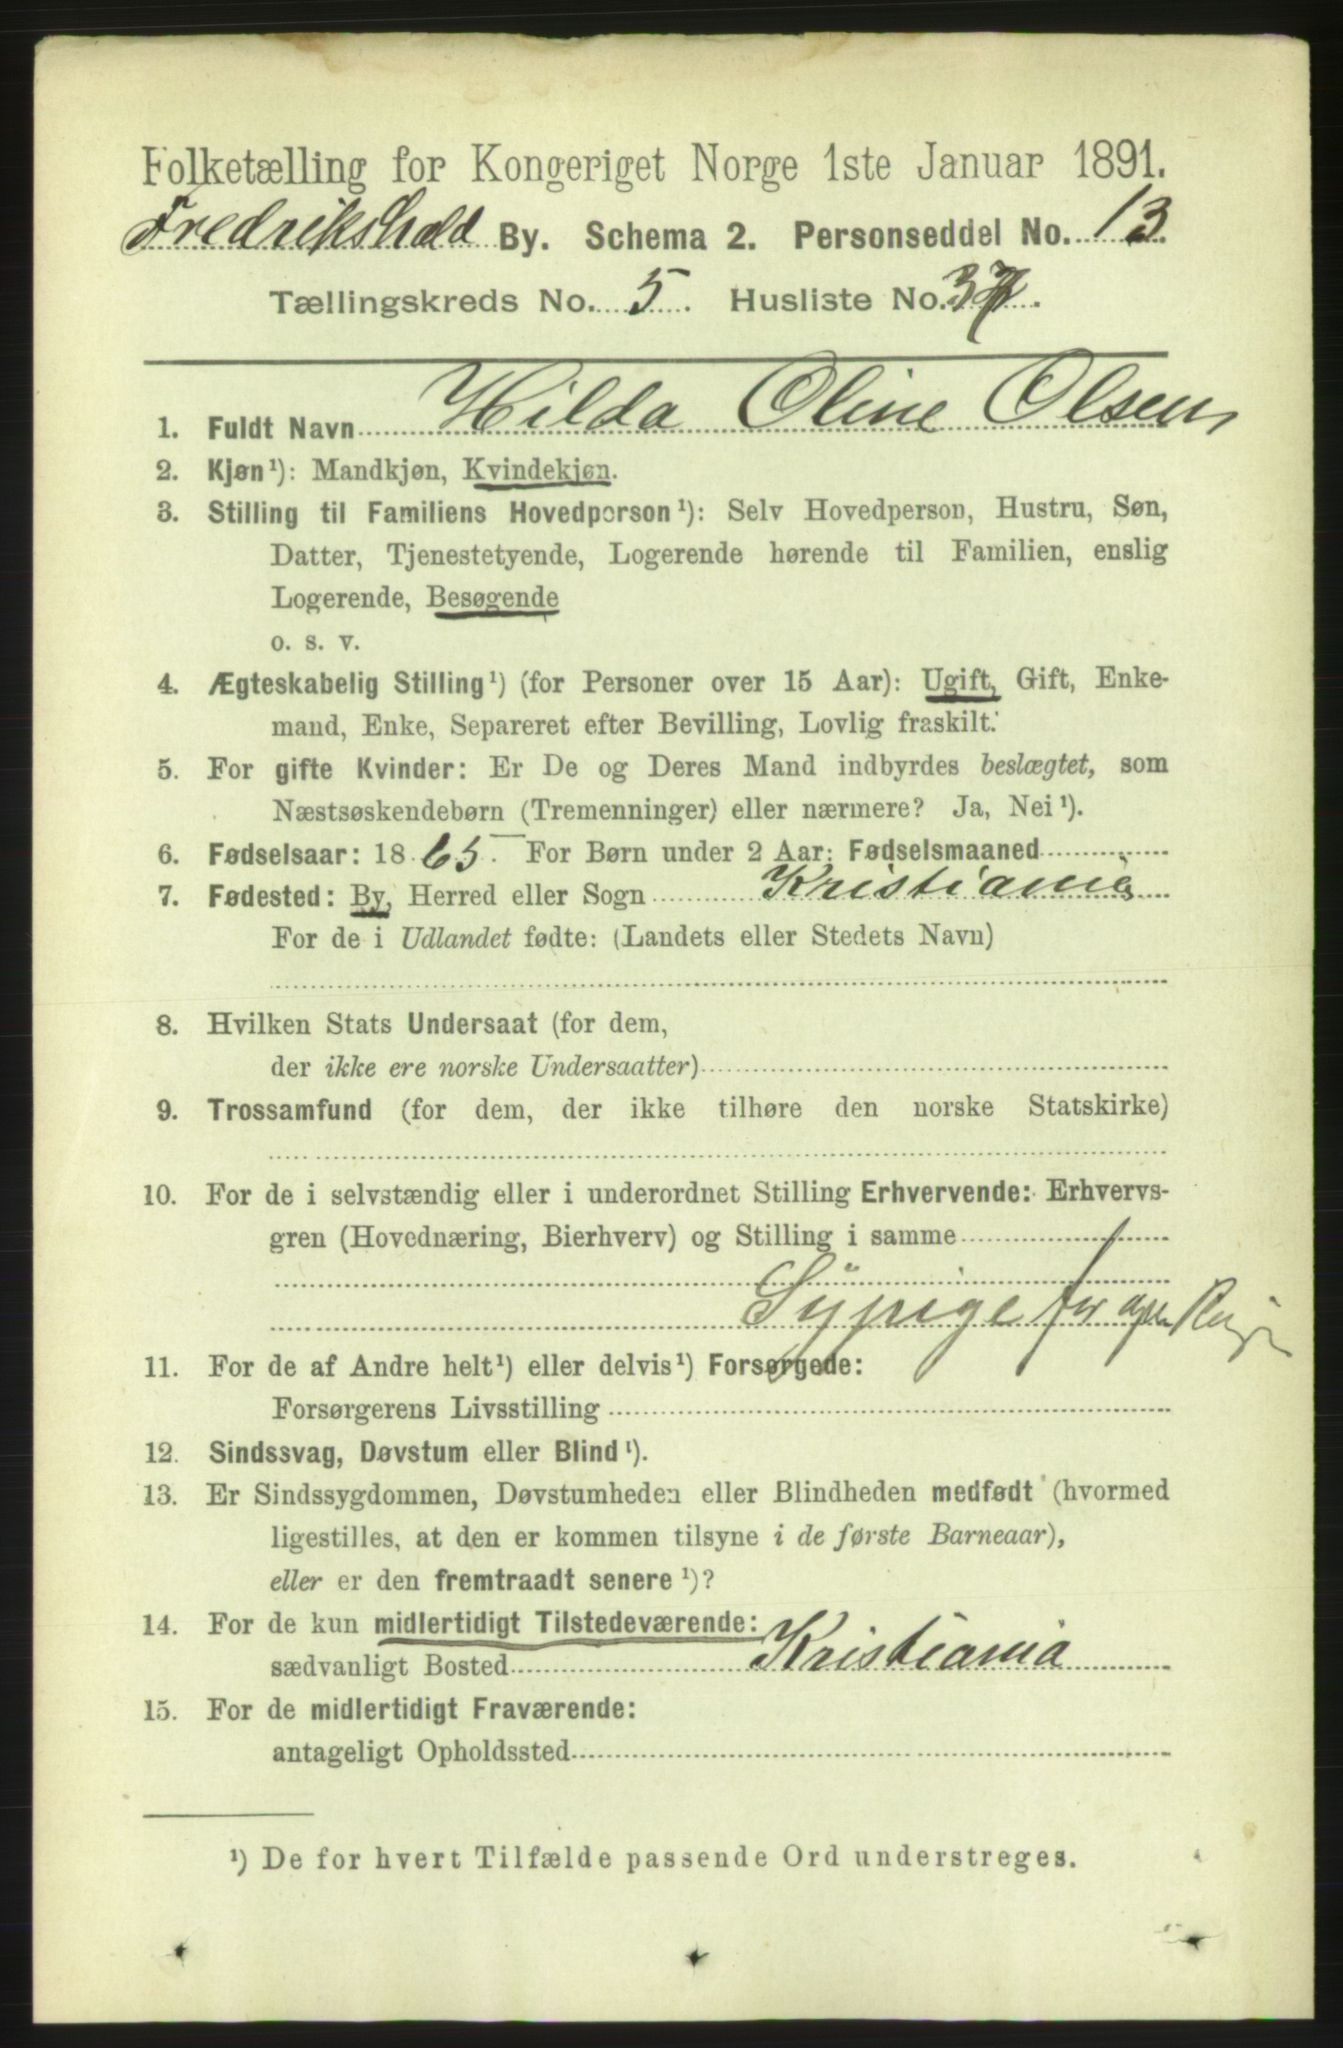 Folketælling for Kongeriget Norge 1ste Januar 1891.
Fredrikshald By. Schema 2. Personseddel No. 13.
Tællingskreds No. 5. Husliste No. 37.
1. Fuldt Navn Hilda Oline Olsen,
2. Kjøn¹): Mandkjøn, Kvindekjøn.
3. Stilling til Familiens Hovedperson¹): Selv Hovedperson, Hustru, Søn,
Datter, Tjenestetyende, Logerende hørende til Familien, enslig
Logerende, Besøgende
o. s. v.
4. Ægteskabelig Stilling¹) (for Personer over 15 Aar): Ugift, Gift, Enke-
mand, Enke, Separeret efter Bevilling, Lovlig fraskilt.
5. For gifte Kvinder: Er De og Deres Mand indbyrdes beslægtet, som
Næstsøskendebørn (Tremenninger) eller nærmere? Ja, Nei¹).
6. Fødselsaar: 1865. For Børn under 2 Aar: Fødselsmaaned
7. Fødested: By, Herred eller Sogn Kristiania
For de i Udlandet fødte: (Landets eller Stedets Navn)
8. Hvilken Stats Undersaat (for dem,
der ikke ere norske Undersaatter)
9. Trossamfund (for dem, der ikke tilhøre den norske Statskirke)
10. For de i selvstændig eller i underordnet Stilling Erhvervende: Erhvervs-
gren (Hovednæring, Bierhverv) og Stilling i samme
Sypige for egen
11. For de af Andre helt¹) eller delvis¹) Forsørgede:
Forsørgerens Livsstilling
12. Sindssvag, Døvstum eller Blind¹).
13. Er Sindssygdommen, Døvstumheden eller Blindheden medfødt (hvormed
ligestilles, at den er kommen tilsyne i de første Barneaar),
eller er den fremtraadt senere¹)?
14. For de kun midlertidigt Tilstedeværende:
sædvanligt Bosted Kristiania
15. For de midlertidigt Fraværende:
antageligt Opholdssted
¹) De for hvert Tilfælde passende Ord understreges.